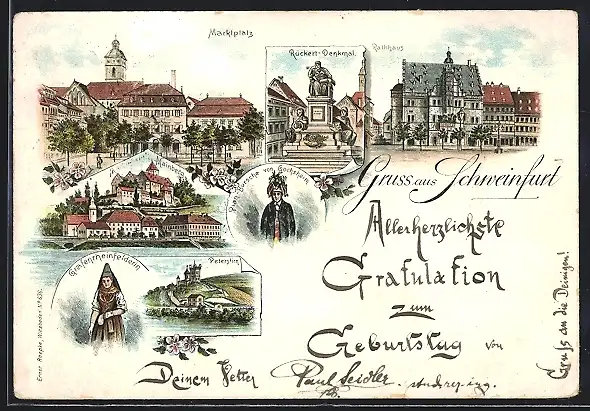 Marktplatz
Rückert-Denkmal.
Rathhaus
Mainberg
Gruss aus Schweinfurt
Gräfentheinfelderin
Peterstirn
Allerherzlichste
Gratulation
zum
Geburtstag von
Deinem Vetter Paul Seidler.
Gruß an die Deinigen!
Ernst Roepke, Wiesbaden